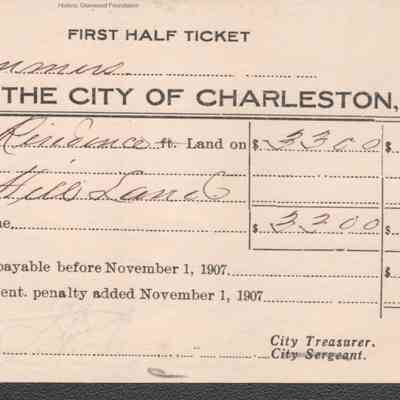 Historic Glenwood Foundation
FIRST HALF TICKET
mmers
THE CITY OF CHARLESTON,
Residence ft. Land on $ 3300 $
Hills Land
ne $ 3300 $
payable before November 1, 1907 $
ent. penalty added November 1, 1907 $
City Treasurer.
City Sergeant.